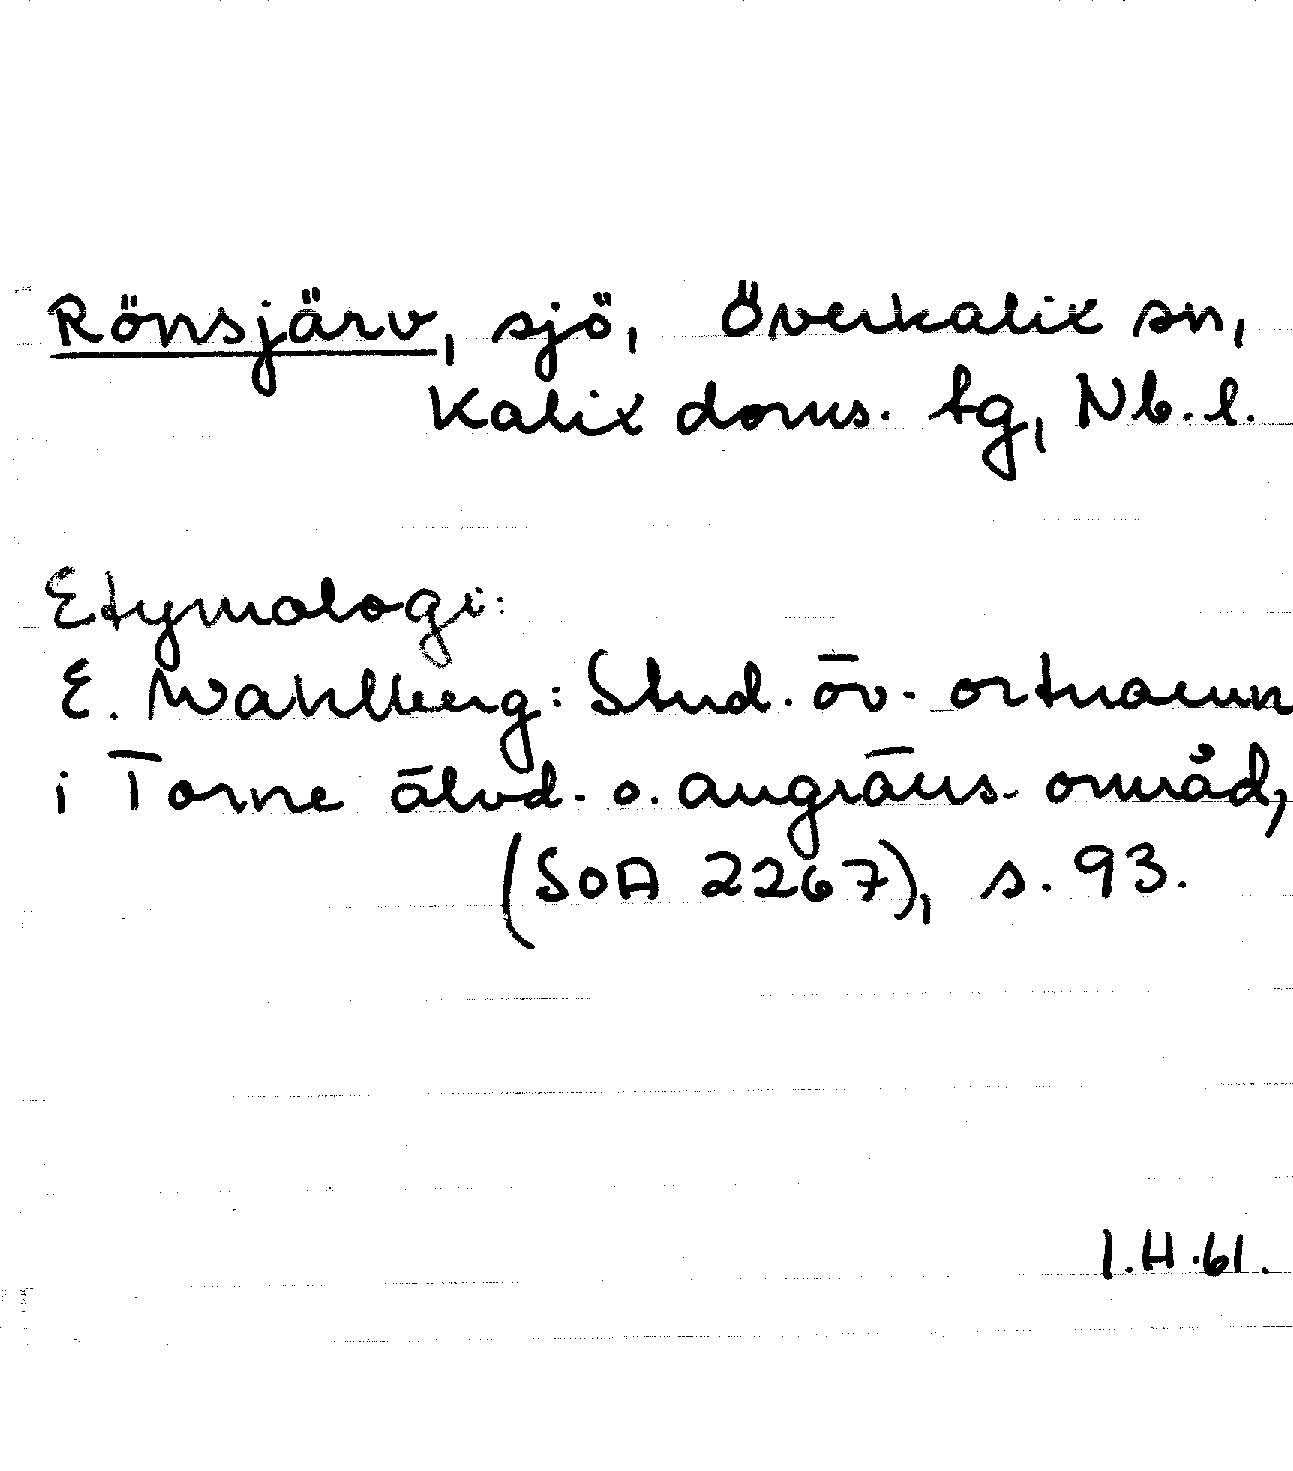 Rönsjärv, sjö, Överkalix sn,
Kalix doms. tg, Nb. l.
Etymologi:
E. Wahlberg: Stud. öv. ortnamn
i Torne älvd. o. angräns. områd,
(SOA 2267), s. 93.
I.H.61.